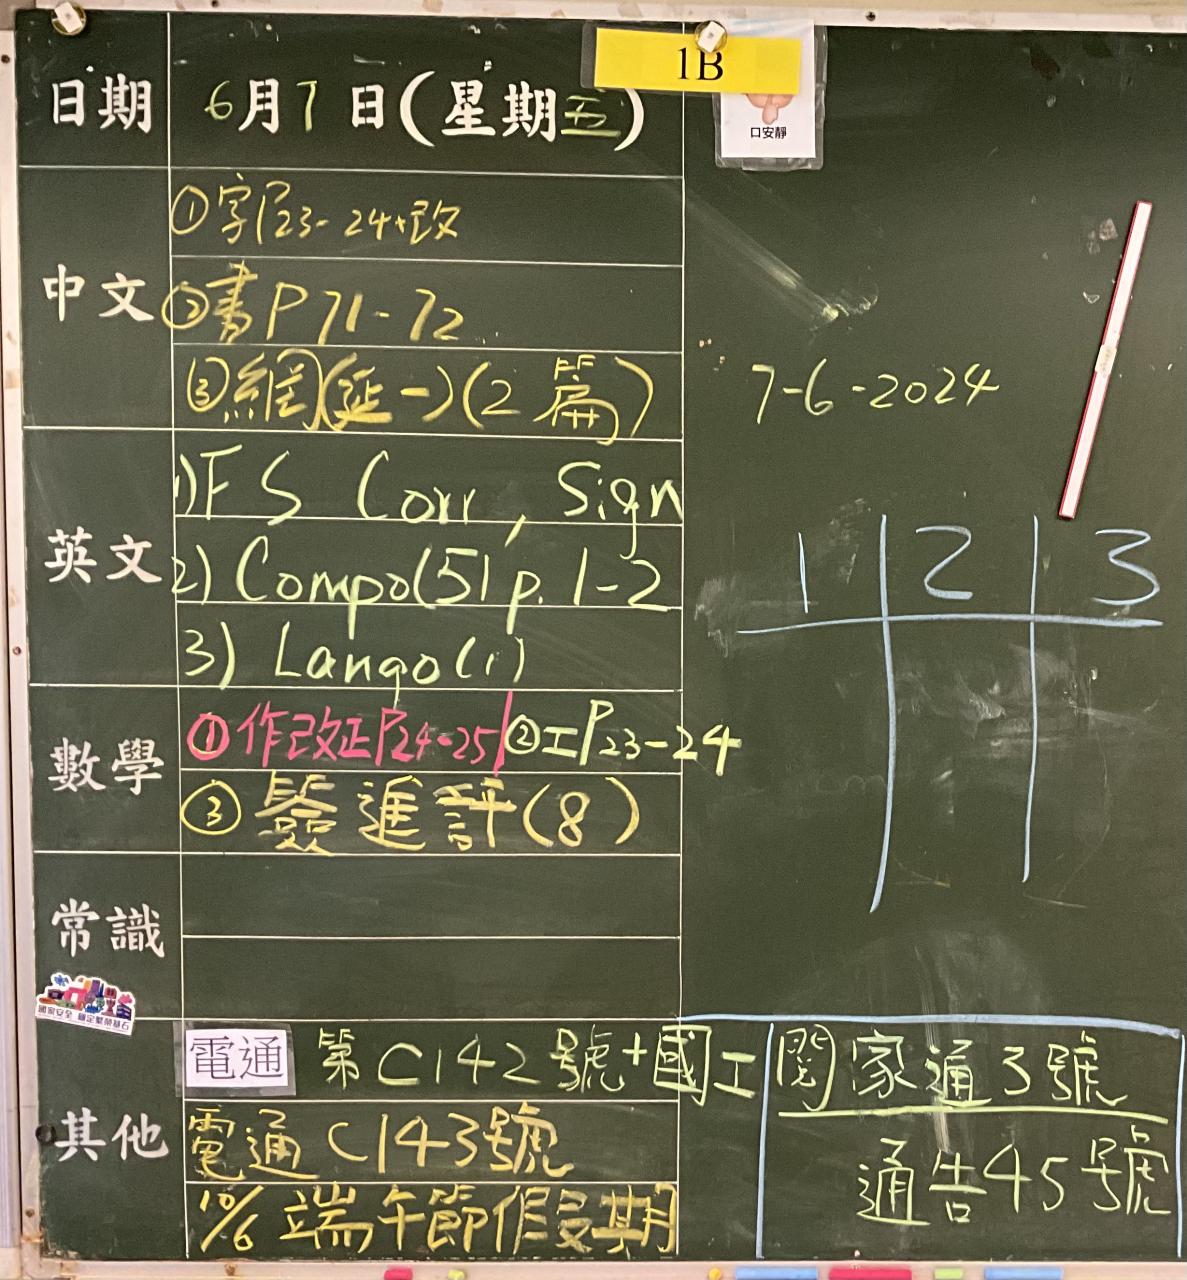 1B
口安靜
日期 6月7日(星期五)
中文
①字P23-24+改
②書P71-72
③網(延一)(2篇)
7-6-2024
英文
1)FS Corr, Sign
2) Compo(5) p. 1-2
3) Lango(1)
1 2 3
數學
①作改正P24-25 ②工P23-24
③簽進評(8)
常識
國家安全 穩定繁榮基石
其他
電通 第C142號+國工
電通C143號
10/6 端午節假期
閱 家通3號
通告45號